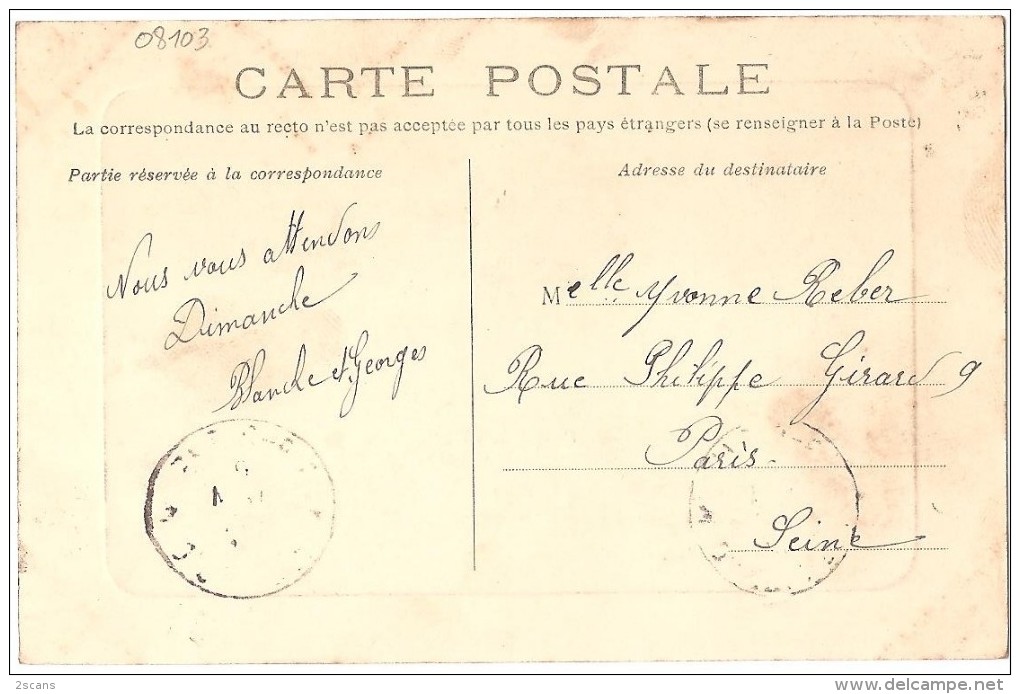 08103
CARTE POSTALE
La correspondance au recto n'est pas acceptée par tous les pays étrangers (se renseigner à la Poste)
Partie réservée à la correspondance
Nous vous attendons
Dimanche
Blanche et Georges
Adresse du destinataire
Melle. Yvonne Reber
Rue Philippe Girard 9
Paris-
Seine
2scans
delcampe.net